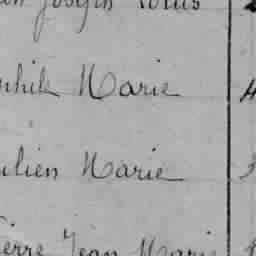 Joseph Louis
Marie 4
Julien Marie 3
Pierre Jean Marie